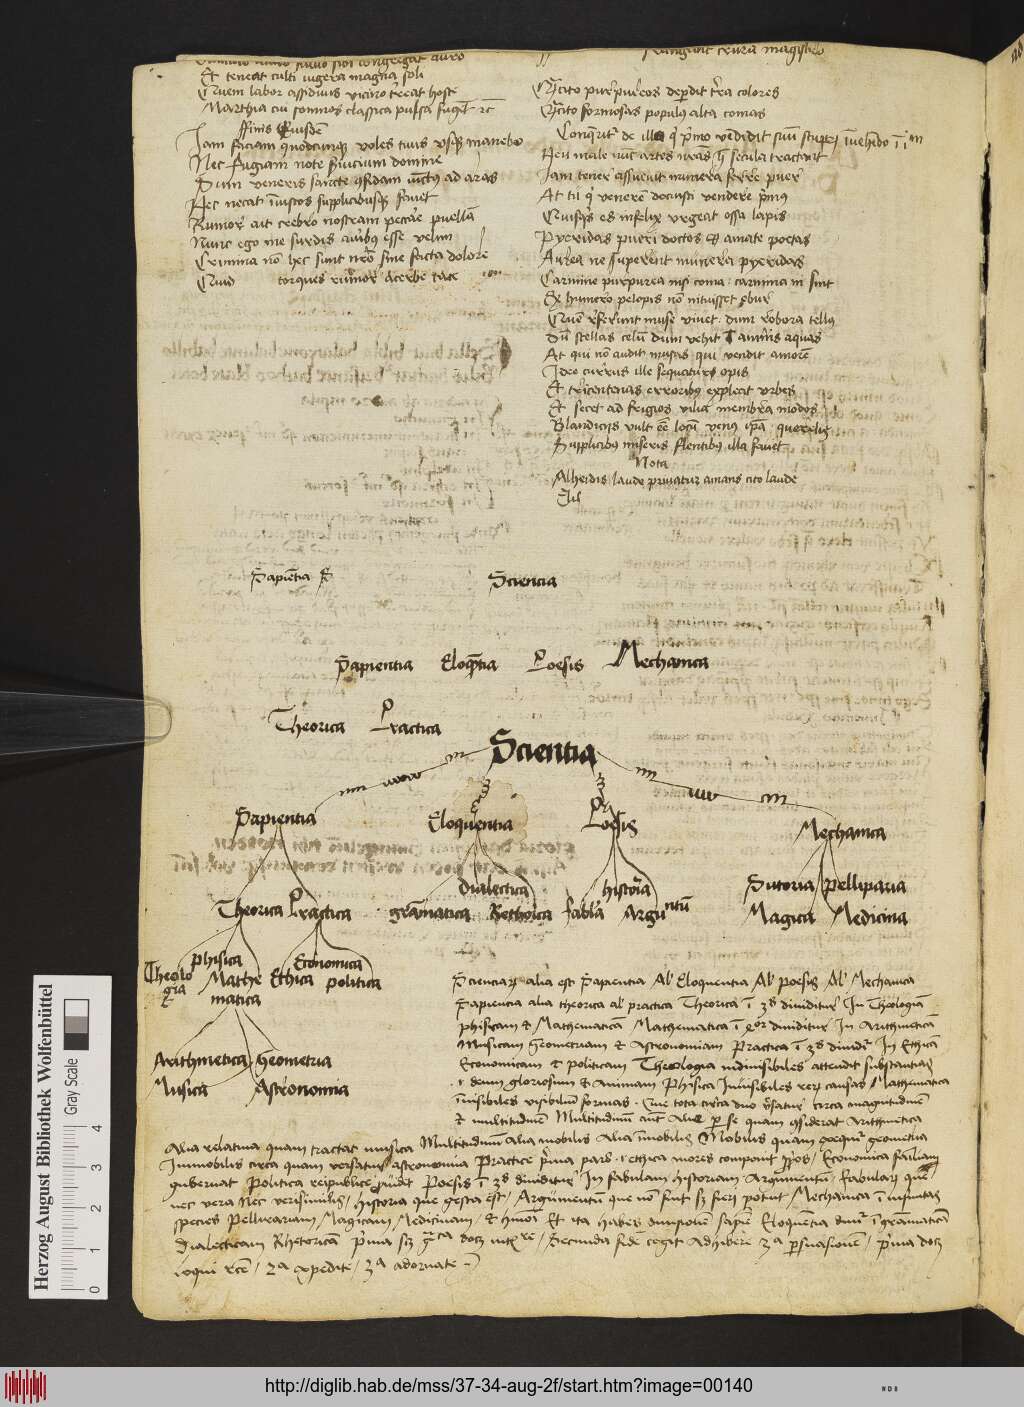 Et teneat culti iugera magna soli
Quem labor assiduus vicino terreat hoste
Martia cui somnos classica pulsa fugent
Iam faciam quodcumque voles tuus usque manebo
Nec fugiam note servicium domine
Nec necat iniustos supplicibusque favet
Rumor ait crebro nostram peccare puellam
Nunc ego me surdis auribus esse velim
Crimina non hec sunt nostro sine facta dolore
Quid torques rumor acerbe tace
Quam cito purpureos deperdit terra colores
Quam cito formosas populus alta comas
Heu male nunc artes miseras hec secula tractant
Iam tener assuevit munera ferre puer
At tu qui venerem docuisti vendere primus
Quisquis es infelix urgeat ossa lapis
Pyeridas pueri doctos et amate poetas
Aurea ne superent munera pyeridas
Carmine purpurea nisi coma carmina ni sint
Ex humero pelopis non nituisset ebur
Quem referent muse vivet dum robora tellus
Dum stellas celum dum vehit amnis aquas
At qui non audit musas qui vendit amorem
Ideo currus ille sequatur opis
Et tricentenas erroribus expleat urbes
Et secet ad frigios vilia membra modos
Blandiciis vult esse locum venus ipsa querelis
Supplicibus miseris flentibus illa favet
Nota
Sapientia
Scientia
Sapientia Eloquentia Poesis Mechanica
Theorica Practica
Scientia
Sapientia Eloquentia Poesis Mechanica
Dialectica historia Sutoria Pelliparia
Theorica Practica gramatica Rethorica fabula Argumentum Magica Medicina
Theologia phisica Mathematica Ethica Economica politica
Arithmetica Geometria
Musica Astronomia
Scienciarum alia est Sapientia Alia Eloquentia Alia poesis Alia Mechanica
Sapiencia alia theorica alia practica Theorica in 3 dividitur In Theologiam
phisicam et Mathematicam Mathematica in 4or dividitur In Arithmeticam
Musicam Geometriam et Astronomiam Practica in 3 dividitur In Ethicam
Economicam et politicam Theologia indivisibiles attendit substantias
deum gloriosum et animam Phisica Invisibiles rerum causas Mathematica
invisibiles visibilium formas Que tota circa duo versatur circa magnitudinem
et multitudinem Multitudinum autem Alia per se quam considerat Arithmetica
Alia relativa quam tractat musica Multitudinum Alia mobilis Alia immobilis Mobilis quam exequitur geometria
Immobilis circa quam versatur astronomia Practice prima pars ethica mores componit Economica familiam
gubernat Politica reipublice providet Poesis in 3 dividitur In fabulam historiam Argumentum fabula que
nec vera nec verisimilis historia que gesta est Argumentum que non sunt sed fieri potuit Mechanica in infinitas
species Pelliparium Magicam Medicinam Et ita habes divisionem sapientie Eloquentia dividitur in gramaticam
Dialecticam Rhetoricam
loqui recte 2a expedite 3a adornate
Herzog August Bibliothek Wolfenbüttel
Gray Scale
0 1 2 3 4
http://diglib.hab.de/mss/37-34-aug-2f/start.htm?image=00140